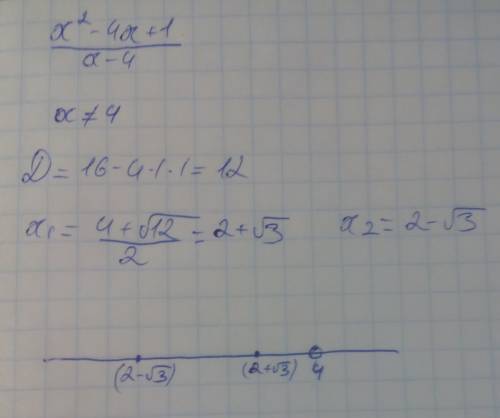 x² - 4x + 1
x - 4
x ≠ 4
D = 16 - 4·1·1 = 12
x₁ = (4 + √12)/2 = 2 + √3    x₂ = 2 - √3
(2 - √3)    (2 + √3)    4